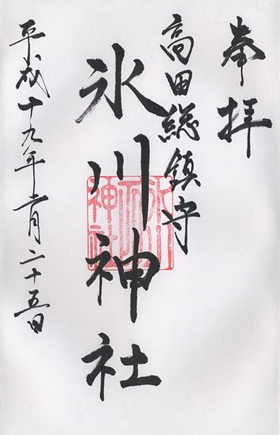 奉拝
高田総鎮守
氷川神社
平成十九年二月二十五日
氷川神社